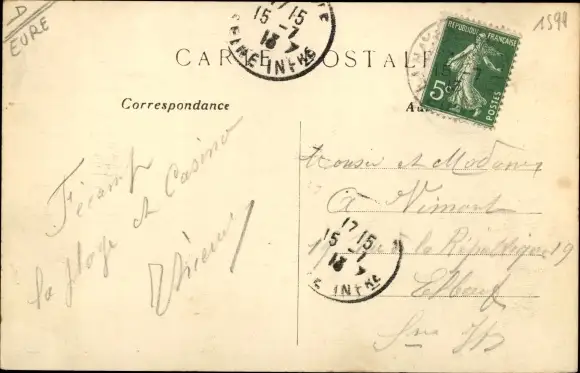 D
EURE
1599
CARTE POSTALE
17 15
15 -7
13
SEINE INFRE
REPUBLIQUE FRANÇAISE
5c
POSTES
Correspondance
Fécamp
la plage et Casino
Monsieur et Madame
A Nimont
à la République 19
Elbeuf
Sne Ifre
17 15
15 -7
13
NE INFRE